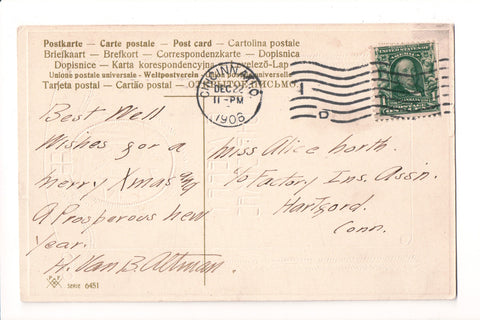 Postkarte — Carte postale — Post card — Cartolina postale
Briefkaart — Brefkort — Correspondenzkarte — Dopisnica
Dopisnice — Karta korespondencyjna — Levelező-Lap
Unione postale universale - Weltpostverein -
Tarjeta postal — Cartão postal — ОТКРЫТОЕ ПИСЬМО
CINCINNATI, O
DEC 22
11-PM
1906
1
D
Best Well
Wishes for a
merry Xmas and
A Prosperous new
Year.
H. Van B. Altman.
Miss Alice north.
c/o Factory Ins. Assn.
Hartford.
Conn.
Serie 6451